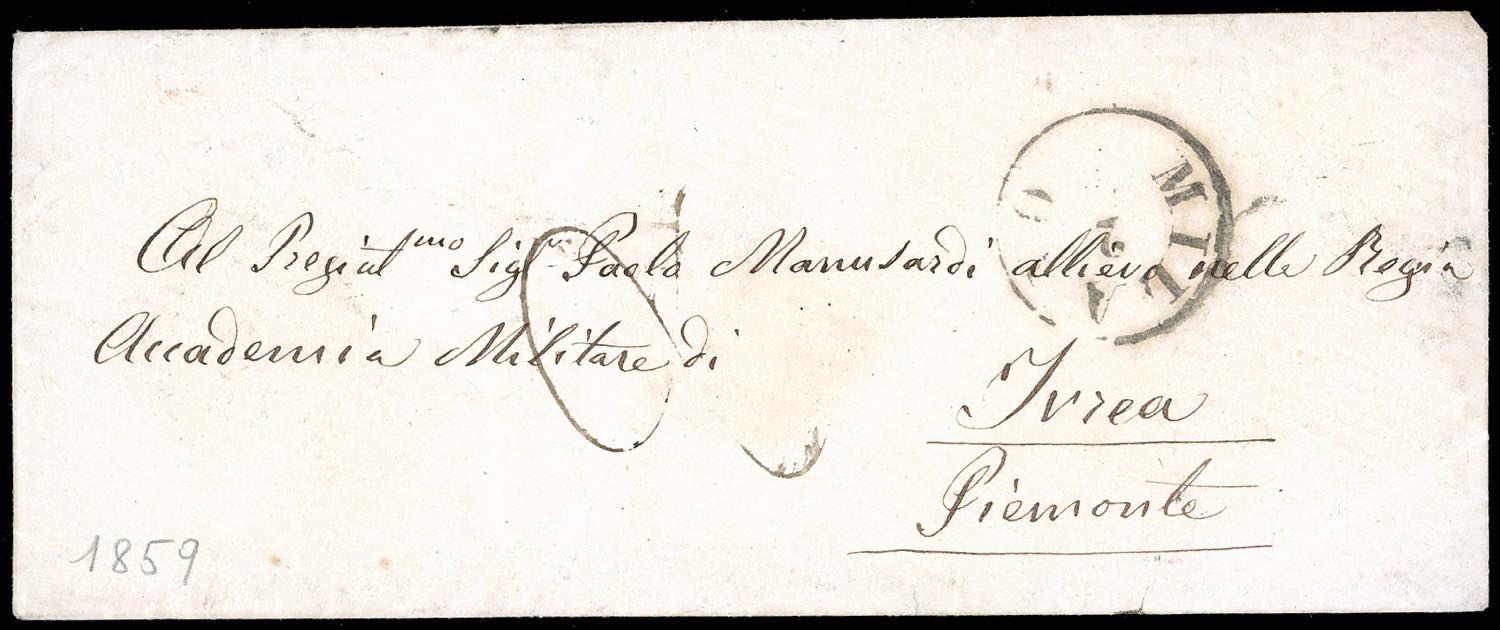 Al Pregiat.mo Sigr Paolo Manusardi allievo nella Regia
Accademia Militare di
Ivrea
Piemonte
MILA O
1859